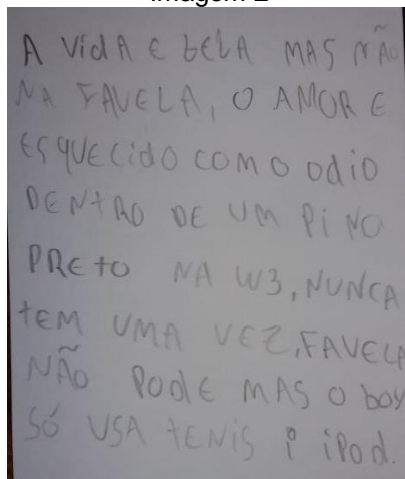 A VidA E bELA MAS NÃO
NA FAVELA, O AMOR E
ESQUECIDO COMO Odio
DENtRO DE UM PiNO
PREtO NA W3, NUNCA
tEM UMA VEZ, FAVELA
NÃO PODE MAS O boy
SÓ USA tENiS i iPod.